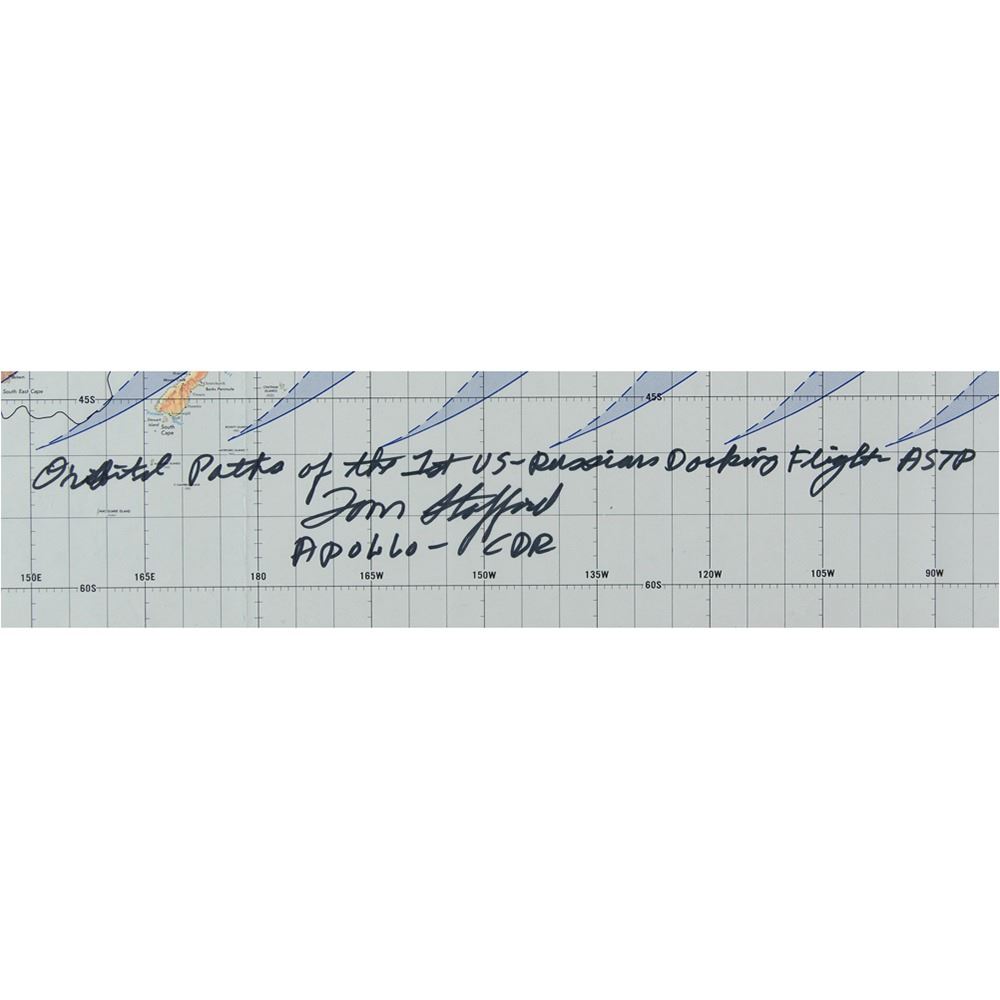 South East Cape
Banks Peninsula
45S
45S
South
Cape
Orbital Paths of the 1st US-Russians Docking Flight ASTP
Tom Stafford
MACQUARIE ISLAND
APOLLO - CDR
150E 165E 180 165W 150W 135W 120W 105W 90W
60S
60S